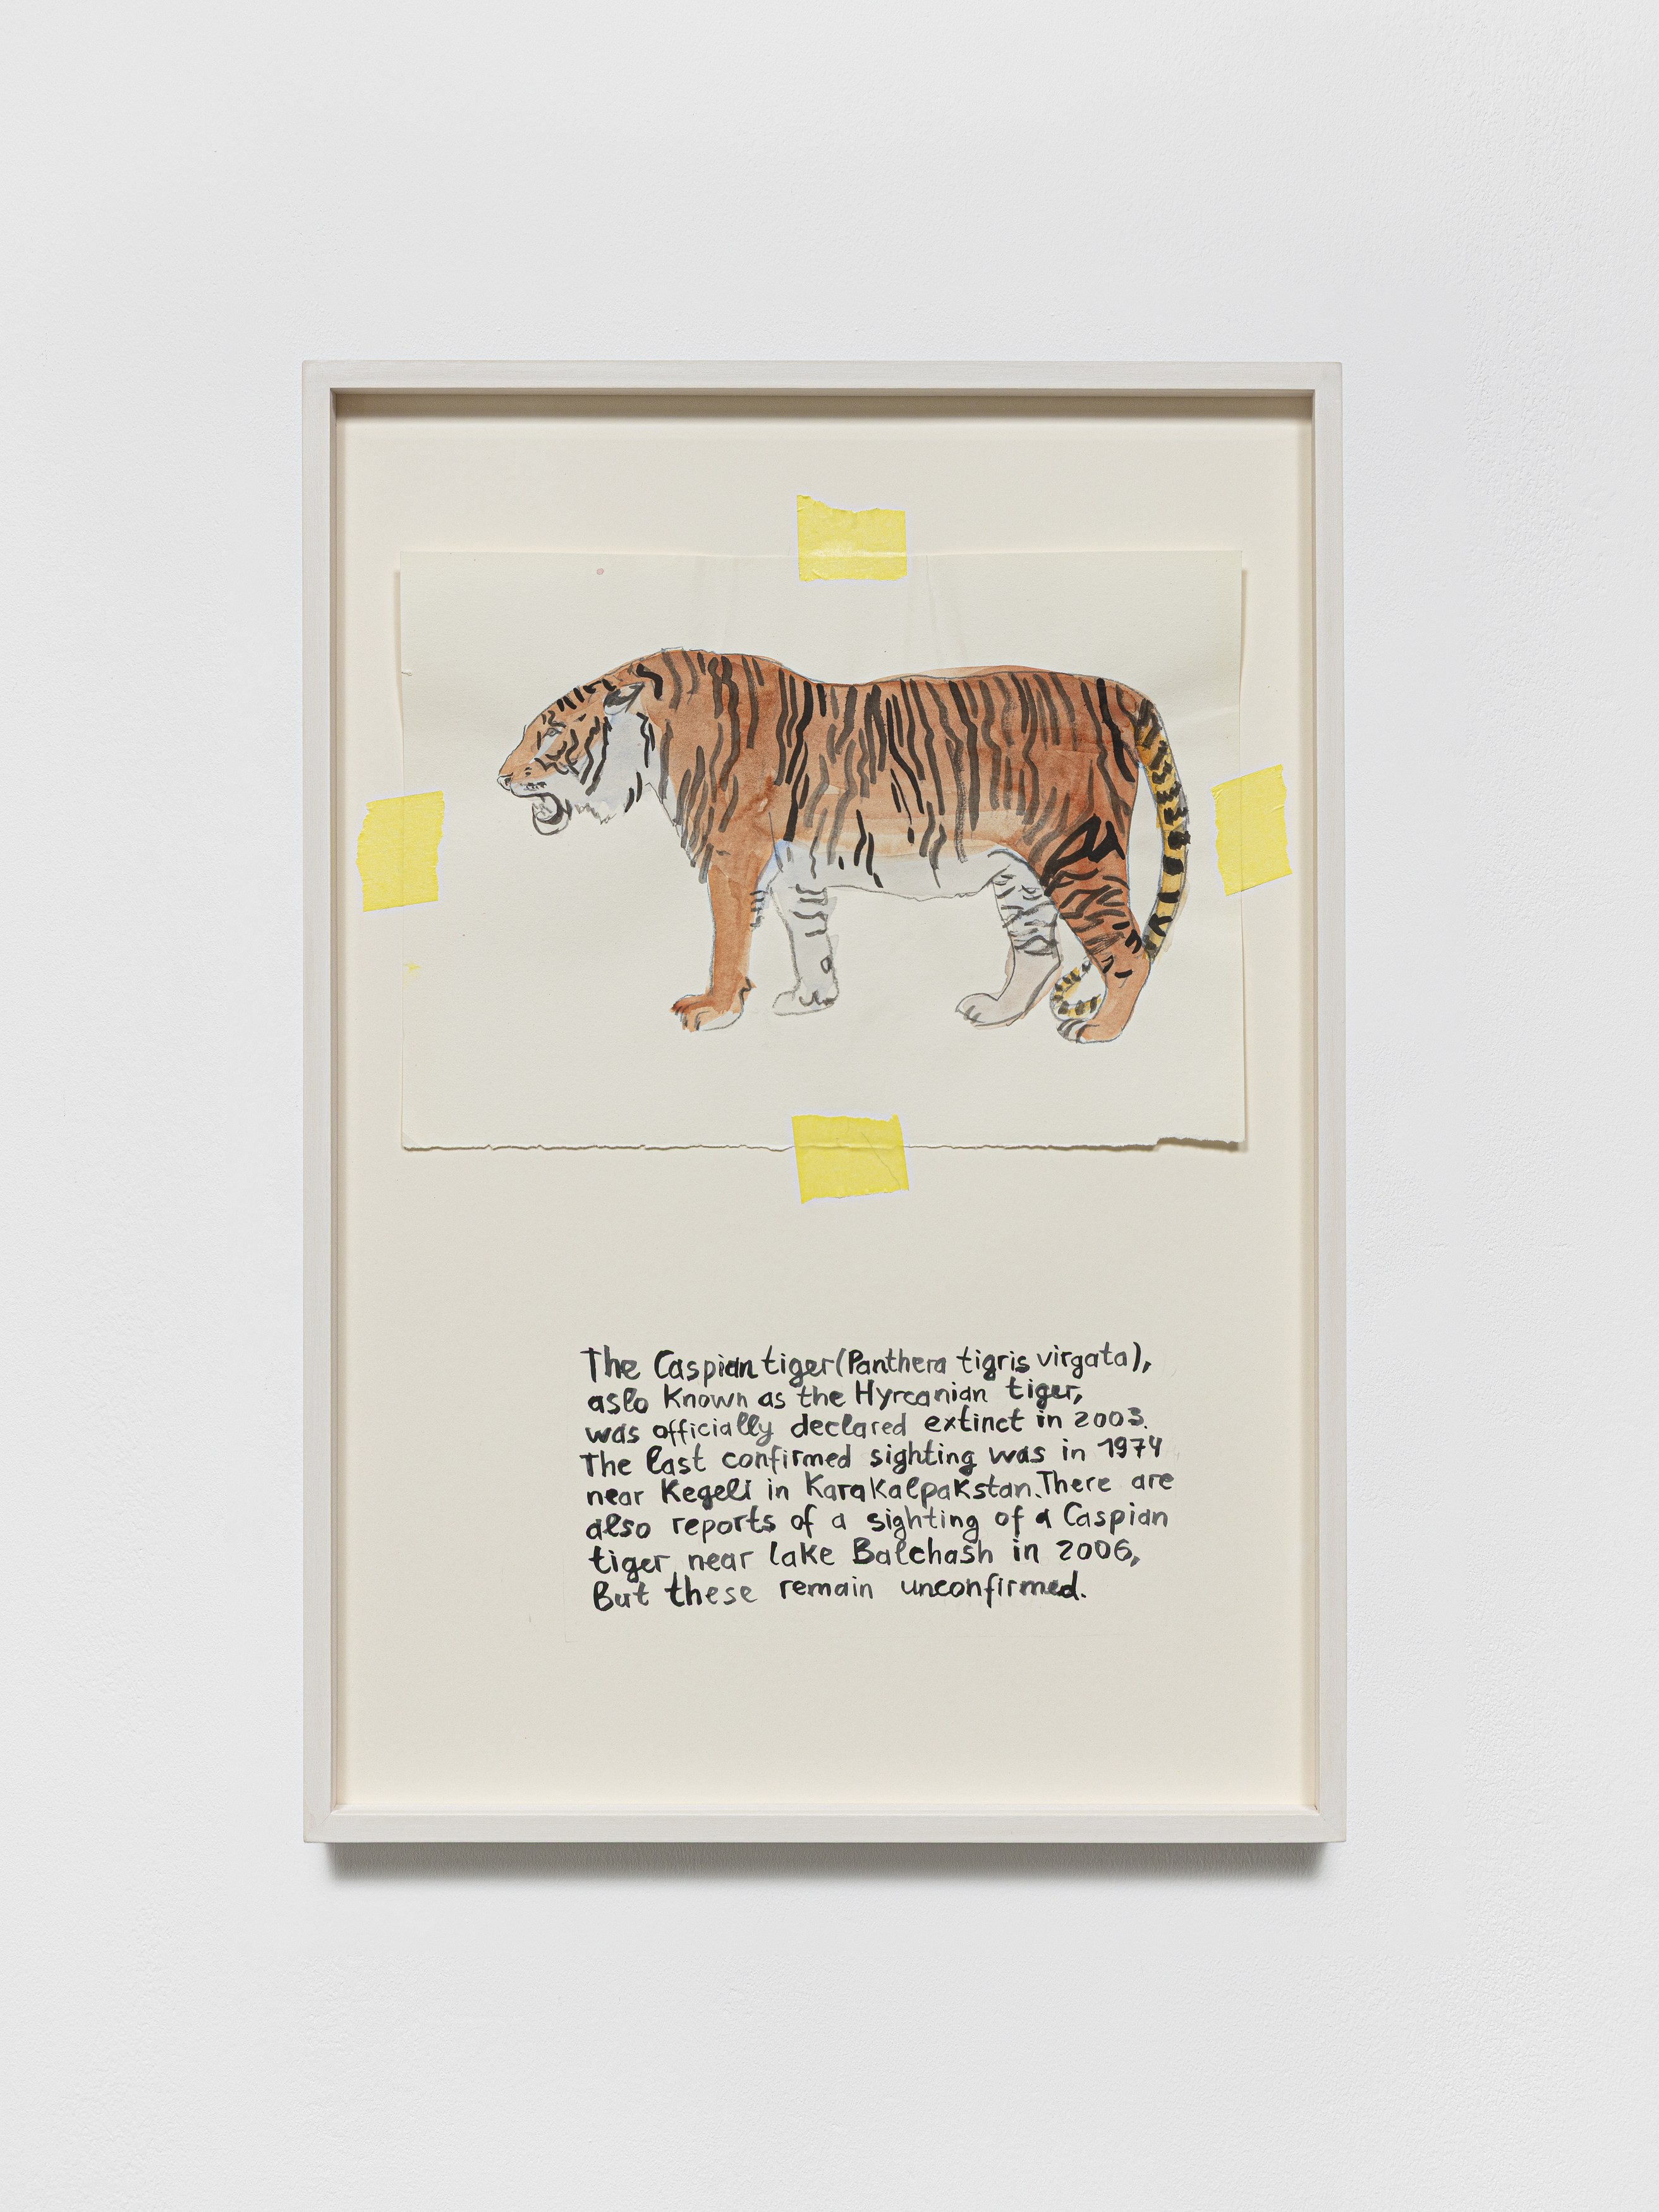 The Caspian tiger (Panthera tigris virgata),
aslo known as the Hyrcanian tiger,
was officially declared extinct in 2003.
The last confirmed sighting was in 1974
near Kegeli in Karakalpakstan. There are
also reports of a sighting of a Caspian
tiger near lake Balchash in 2006,
But these remain unconfirmed.